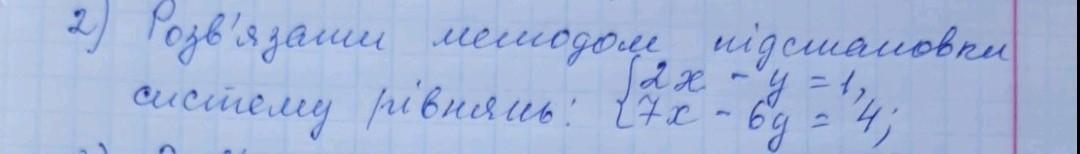 2) Розв'язати методом підстановки
систему рівнянь: {2x - y = 1,
{7x - 6y = 4;